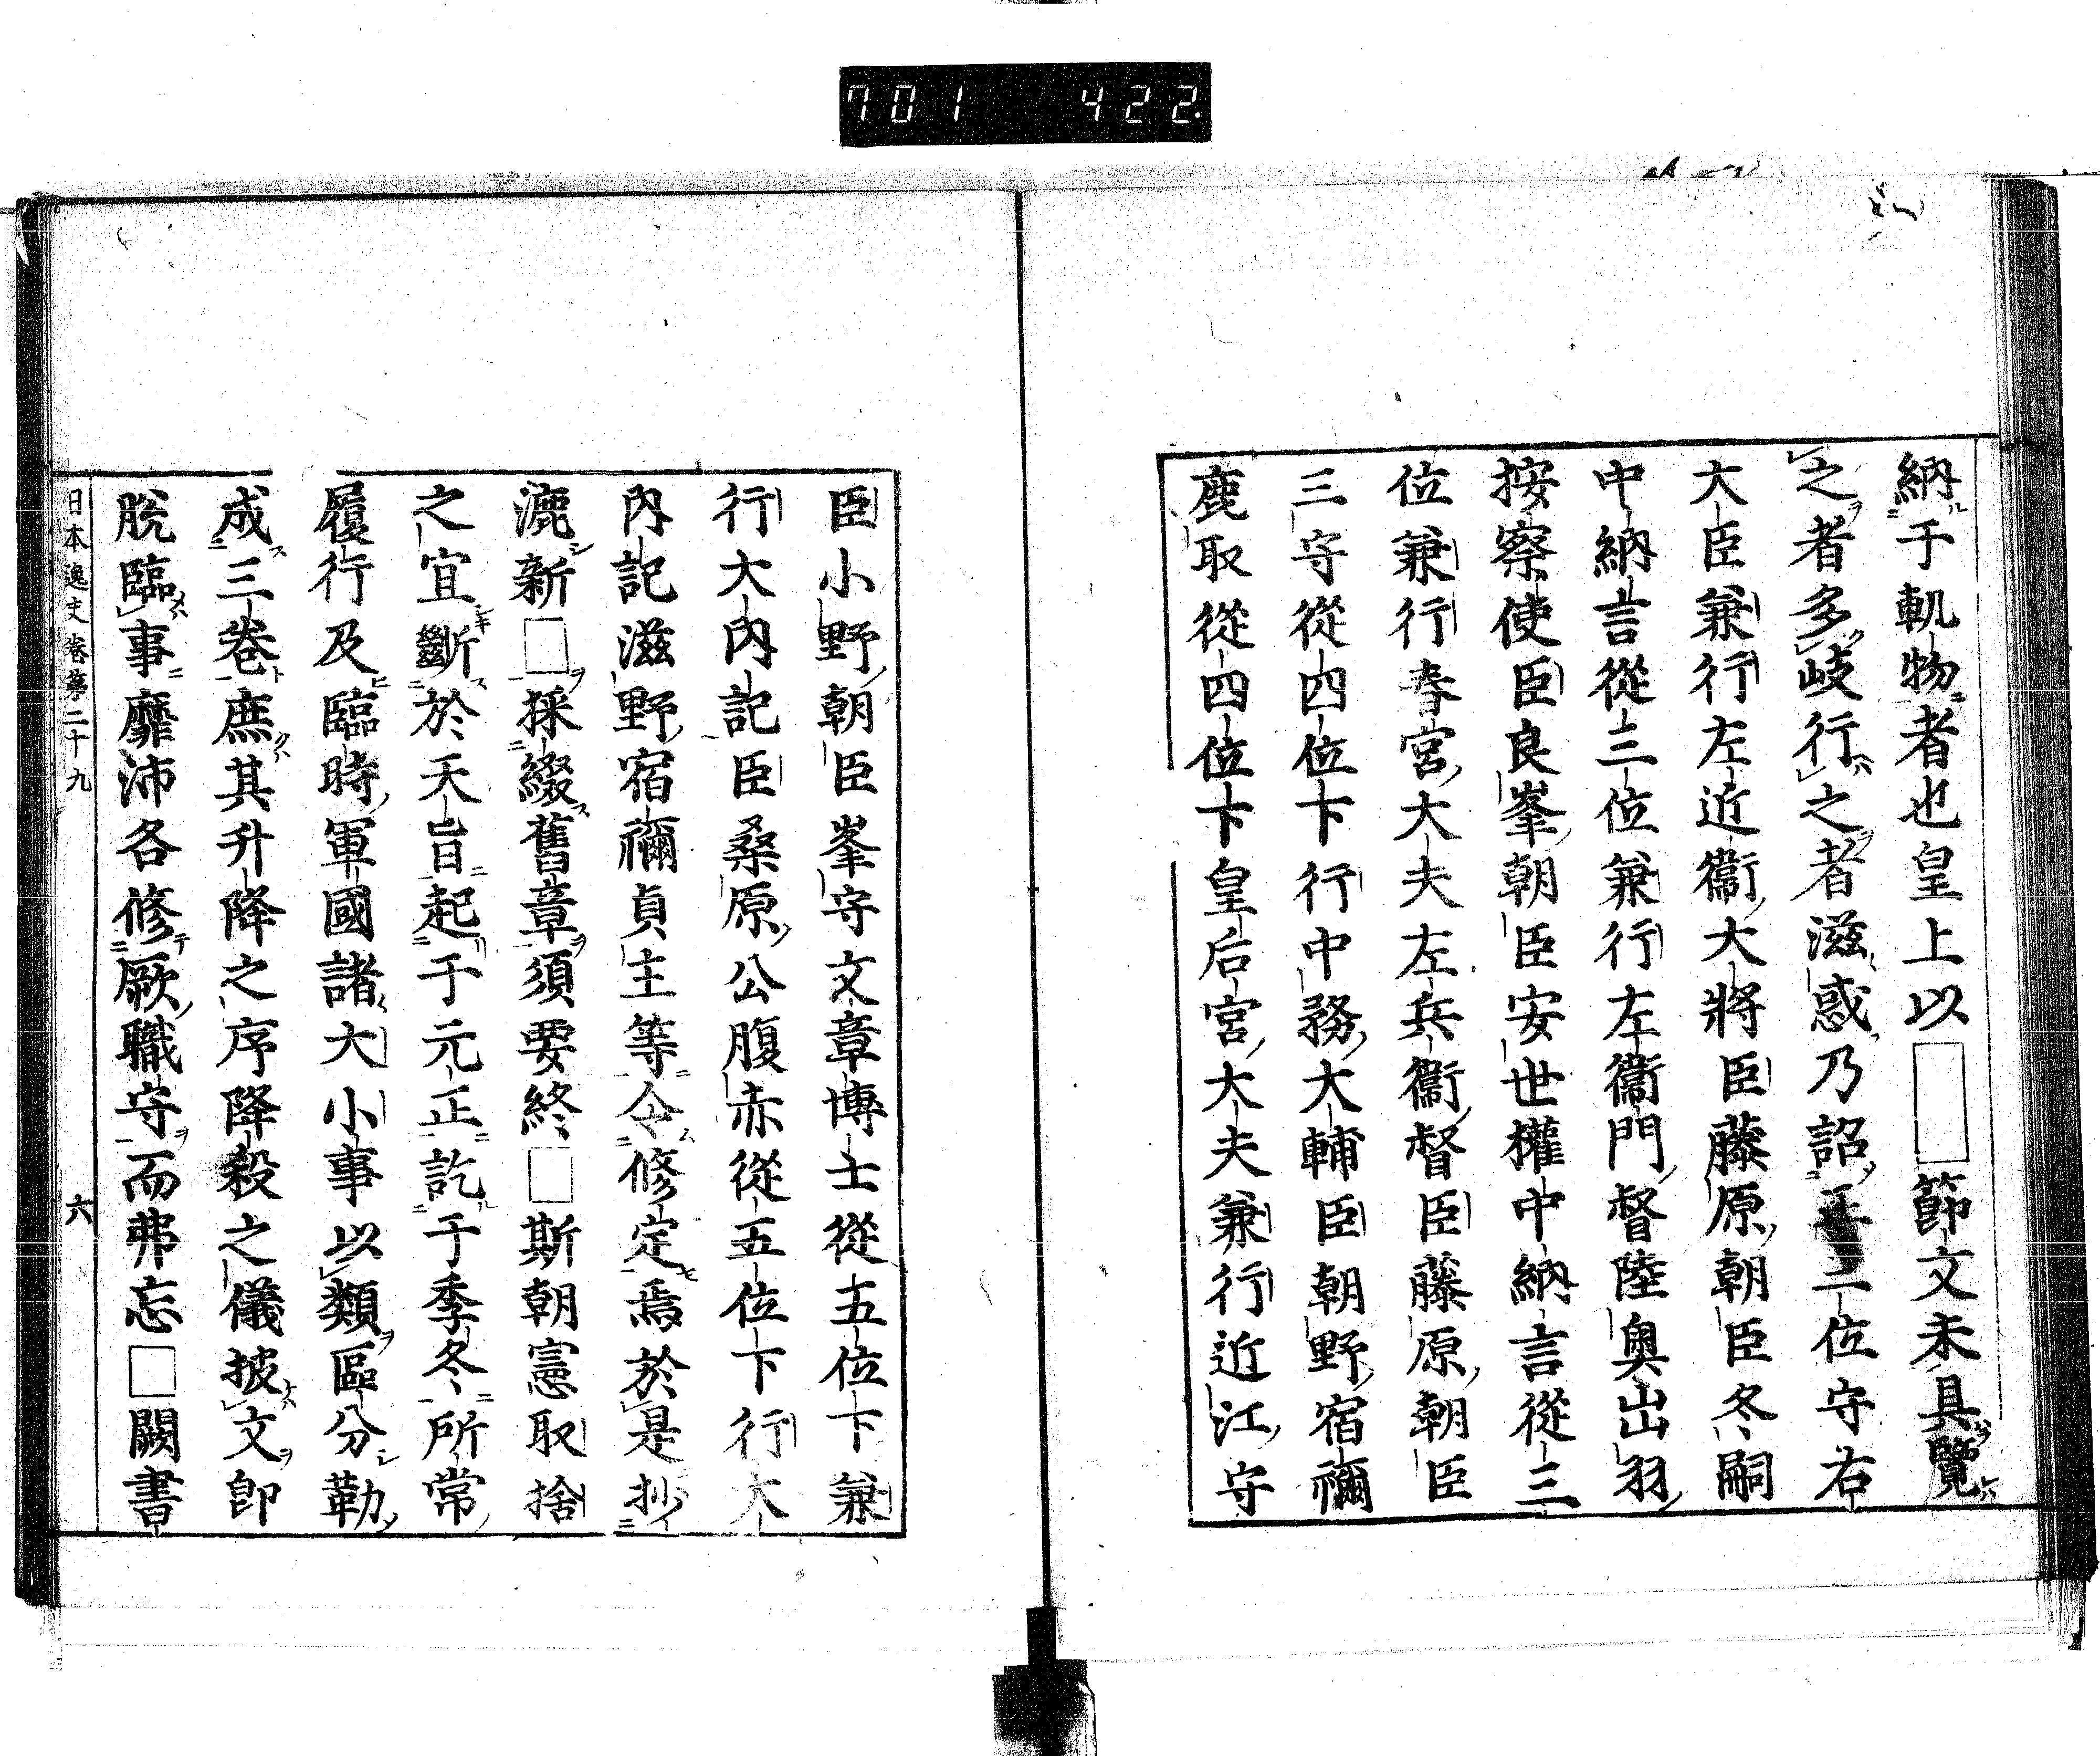 701 422
納于軌物者也皇上以□節文未具覽
之者多岐行之者滋惑乃詔二位守右
大臣兼行左近衞大將臣藤原朝臣冬嗣
中納言從三位兼行左衞門督陸奥出羽
按察使臣良峯朝臣安世權中納言從三
位兼行春宮大夫左兵衞督臣藤原朝臣
三守從四位下行中務大輔臣朝野宿禰
鹿取從四位下皇后宮大夫兼行近江守
臣小野朝臣岑守文章博士從五位下兼
行大內記臣桑原公腹赤從五位下行大
內記滋野宿禰貞主等令修定焉於是抄
漉新□採綴舊章須要終□斯朝憲取捨
之宜斷於天旨起于元正訖于季冬所常
履行及臨時軍國諸大小事以類區分勒
成三卷庶其升降之序降殺之儀披文卽
脫臨事靡沛各修厥職守而弗忘□闕書
日本逸史卷第二十九 六